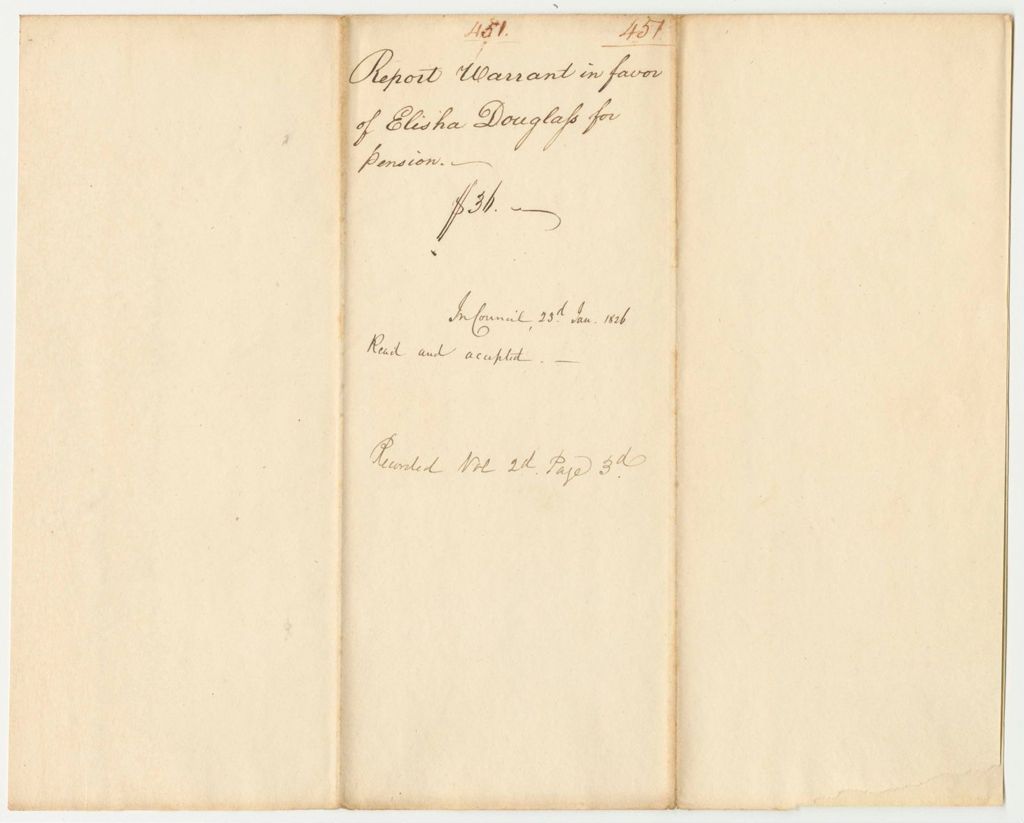 451. 451
Report Warrant in favor
of Elisha Douglass for
pension. —
$36. —
In Council, 23d Jan. 1826
Read and accepted. —
Recorded Vol 2d. Page 3d.